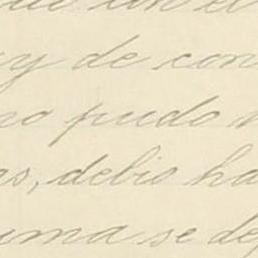 y de con
no pudo
as, debio ha
uma se de